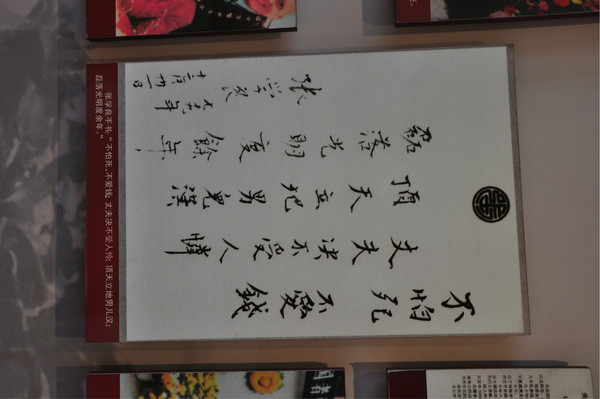 不怕死不愛錢
丈夫決不受人憐
頂天立地男兒漢
磊落光明度餘年
張學良
十二月廿一日
张学良手书：“不怕死、不爱钱，丈夫决不受人怜；顶天立地男儿汉；
磊落光明度余年。”